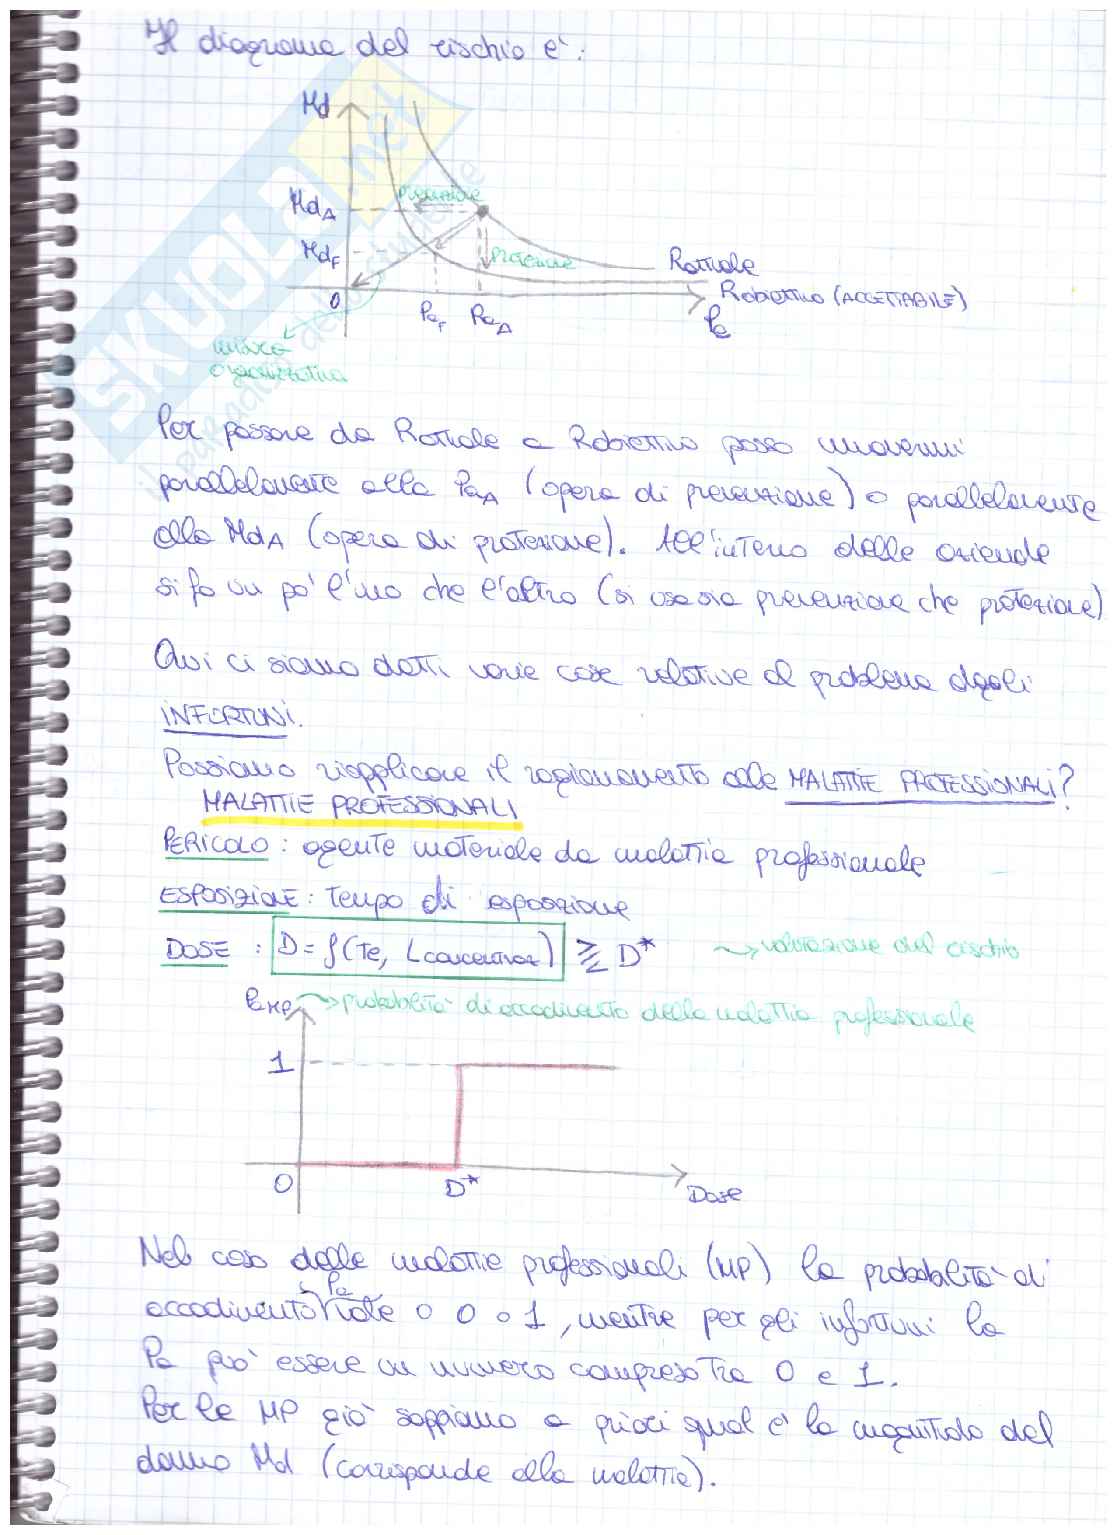 Il diagramma del rischio è:
Md
prevenzione
MdA
MdF
protezione
Rattuale
Robiettivo (ACCETTABILE)
0
PaF
PaA
Pa
misure
organizzative
SKUOLA.net
il paradiso dello studente
Per passare da Rattuale a Robiettivo posso muovermi
parallelamente alla PaA (opera di prevenzione) o parallelamente
alla MdA (opera di protezione). All'interno delle aziende
si fa un po' l'uno che l'altro (si usa sia prevenzione che protezione)
Qui ci siamo dotti varie cose relative al problema degli
INFORTUNI.
Possiamo riapplicare il ragionamento alle MALATTIE PROFESSIONALI?
MALATTIE PROFESSIONALI
PERICOLO: agente materiale da malattia professionale
ESPOSIZIONE: tempo di esposizione
DOSE: D = f(Te, Lconcentraz) ⪌ D* → valutazione del rischio
PaMP → probabilità di accadimento della malattia professionale
1
0
D*
Dose
Nel caso delle malattie professionali (MP) la probabilità di
accadimento Pa vale o 0 o 1, mentre per gli infortuni la
Pa può essere un numero compreso tra 0 e 1.
Per le MP già sappiamo a priori qual è la magnitudo del
danno Md (corrisponde alla malattia).